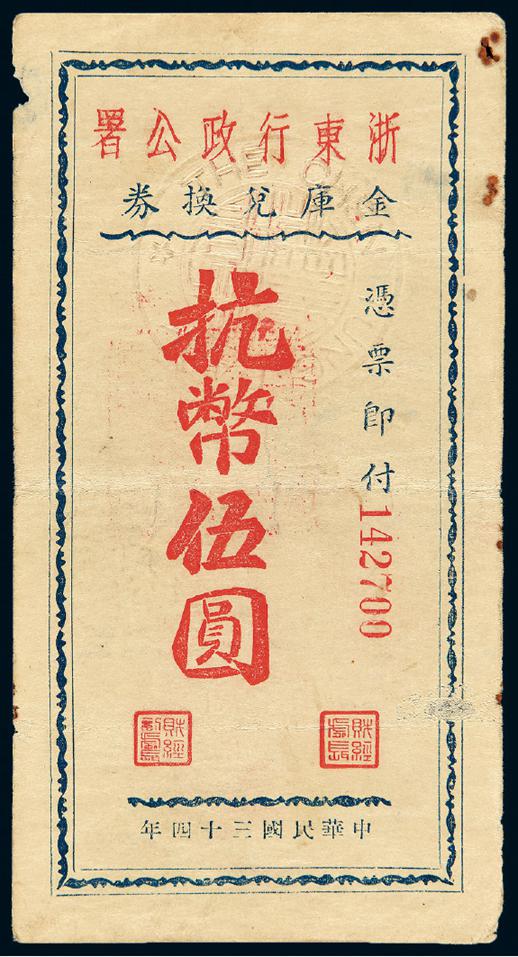 浙東行政公署
金庫兌換券
憑票即付
142700
抗幣伍圓
財經處長
財經副處長
中華民國三十四年
THE CH